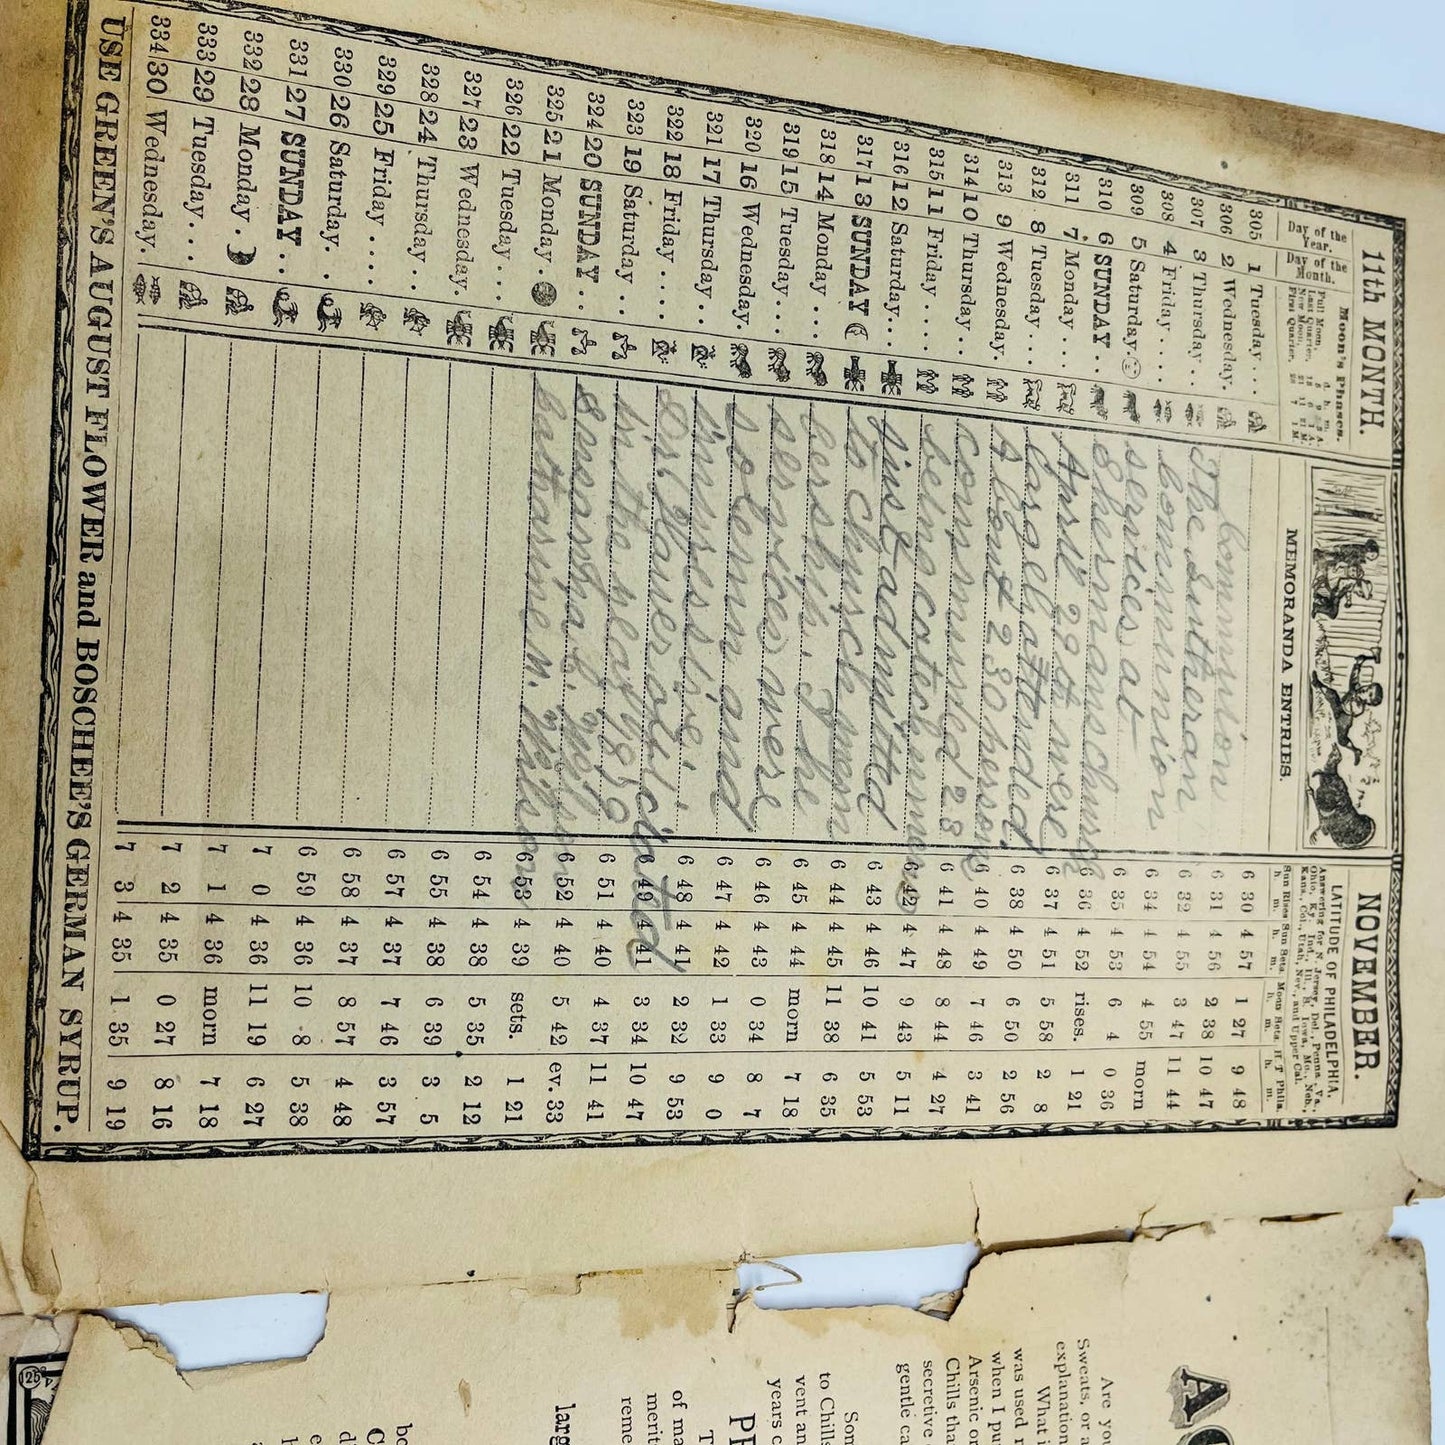 11th MONTH.
Day of the Year.
Day of the Month.
Moon's Phases.
d. h. m.
Full Moon,
Last Quarter,
New Moon,
First Quarter,
305 1 Tuesday...
306 2 Wednesday.
307 3 Thursday..
308 4 Friday....
309 5 Saturday.
310 6 SUNDAY..
311 7 Monday...
312 8 Tuesday...
313 9 Wednesday.
314 10 Thursday..
315 11 Friday....
316 12 Saturday...
317 13 SUNDAY
318 14 Monday...
319 15 Tuesday...
320 16 Wednesday.
321 17 Thursday..
322 18 Friday....
323 19 Saturday..
324 20 SUNDAY..
325 21 Monday.
326 22 Tuesday...
327 23 Wednesday.
328 24 Thursday..
329 25 Friday....
330 26 Saturday..
331 27 SUNDAY..
332 28 Monday.
333 29 Tuesday...
334 30 Wednesday.
MEMORANDA ENTRIES.
Communion
The Lutheran
Communion
services at
Shermanschurch
April 29th were
largely attended.
About 230 persons
communed 28
being catechumens
just admitted
to church mem
bership. The
services were
solemn and
impressive.
Dr. Hauer officiated
in the year 1859
Wilson
Catharine N. Wilson
NOVEMBER.
LATITUDE OF PHILADELPHIA,
Answering for N. Jersey, Del., Penna., Va.,
Ohio, Ky., Ind., Ill., S. Iowa, Mo., Neb.,
Kans., Col., Utah, Nev., and Upper Cal.
Sun Rises Sun Sets. Moon Sets. H T Phila.
h. m. h. m. h. m. h. m.
6 30 4 57 1 27 9 48
6 31 4 56 2 38 10 47
6 32 4 55 3 47 11 44
6 34 4 54 4 55 morn
6 35 4 53 6 4 0 36
6 36 4 52 rises. 1 21
6 37 4 51 5 58 2 8
6 38 4 50 6 50 2 56
6 40 4 49 7 46 3 41
6 41 4 48 8 44 4 27
6 42 4 47 9 43 5 11
6 43 4 46 10 41 5 53
6 44 4 45 11 38 6 35
6 45 4 44 morn 7 18
6 46 4 43 0 34 8 7
6 47 4 42 1 33 9 0
6 48 4 41 2 32 9 53
6 49 4 41 3 34 10 47
6 51 4 40 4 37 11 41
6 52 4 40 5 42 ev.33
6 53 4 39 sets. 1 21
6 54 4 38 5 35 2 12
6 55 4 38 6 39 3 5
6 57 4 37 7 46 3 57
6 58 4 37 8 57 4 48
6 59 4 36 10 8 5 38
7 0 4 36 11 19 6 27
7 1 4 36 morn 7 18
7 2 4 35 0 27 8 16
7 3 4 35 1 35 9 19
USE GREEN'S AUGUST FLOWER and BOSCHEE'S GERMAN SYRUP.
Are you
Sweats, or a
explanation
What i
was used
when I pu
Arsenic or
Chills tha
secretive
gentle ca
Som
to Chills
vent an
years
of ma
merit
reme
larg
125